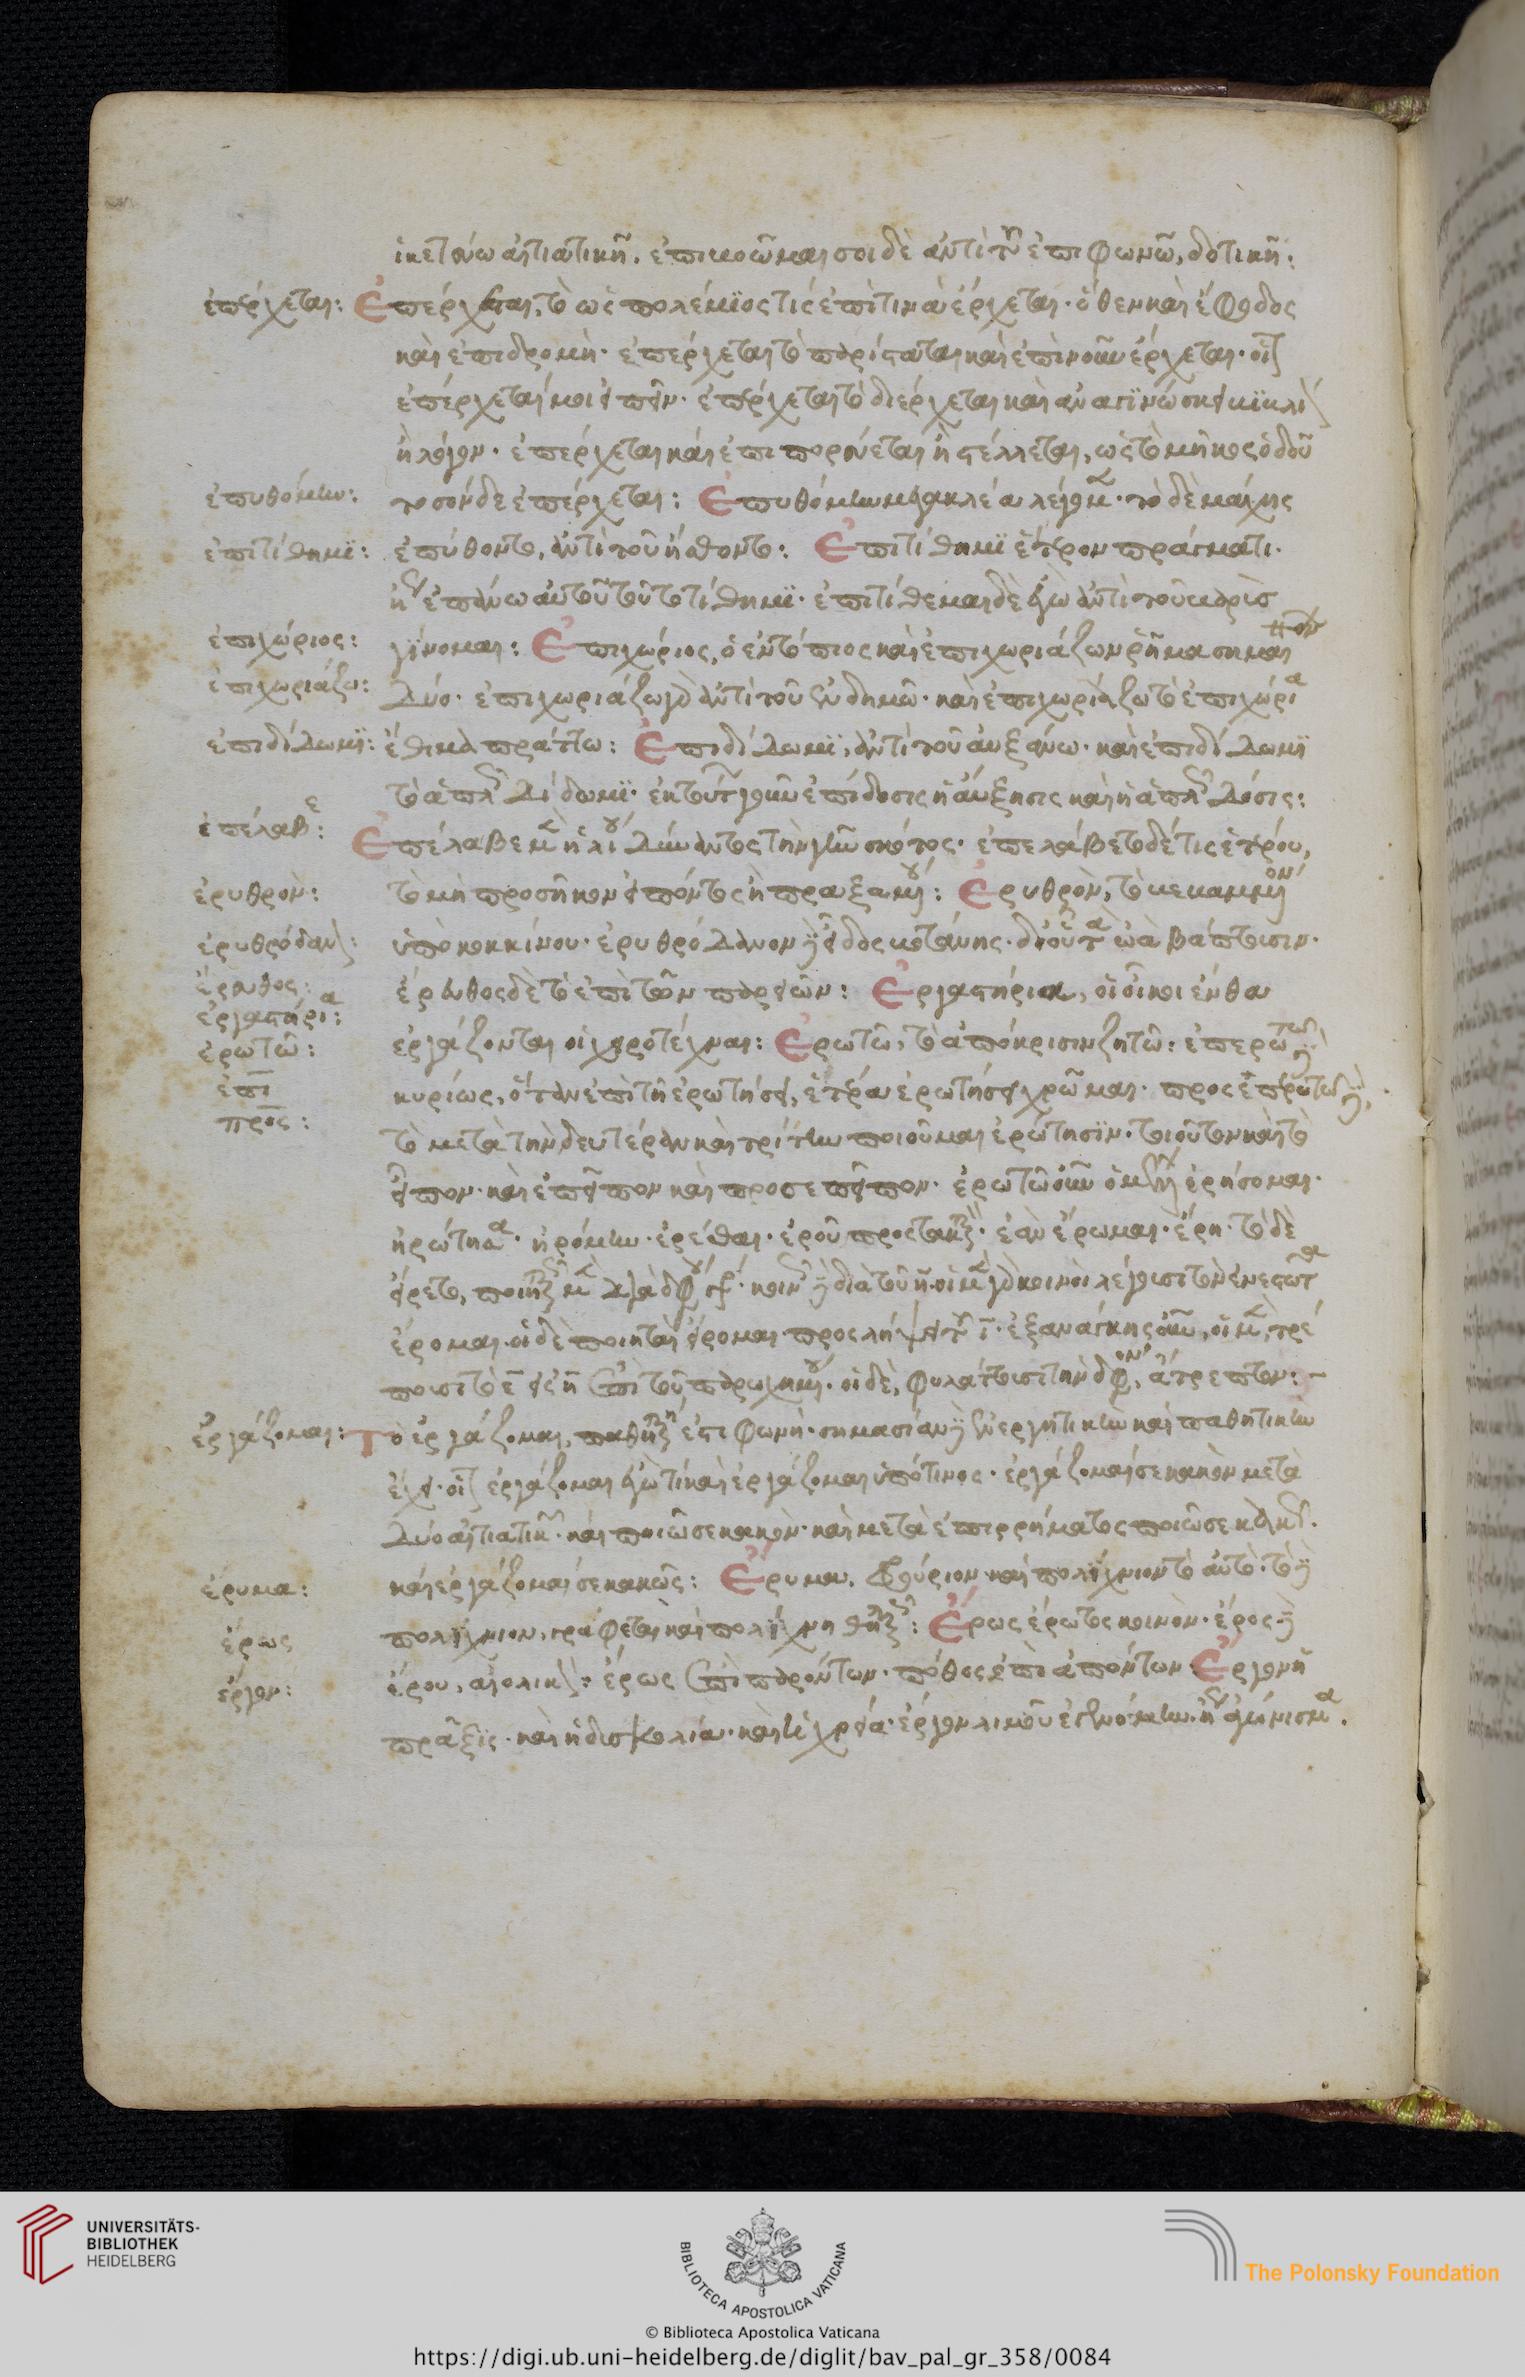 ἱκετεύω αἰτιατικῇ. ἐπιβοῶμαι σοι δὲ ἀντὶ τοῦ ἐπιφωνῶ, δοτικῇ:
ἐπέρχεται: Ἐπέρχεται, τὸ ὡς πολέμϊος τίς ἐπί τινα ἔρχεται· ὅθεν καὶ ἔφοδος
καὶ ἐπιδρομή· ἐπέρχεται τὸ παρίσταται καὶ ἐπὶ νοῦν ἔρχεται· οἷον
ἐπέρχεταί μοι εἰπεῖν· ἐπέρχεται τὸ διέρχεται καὶ ἀναγινώσκει
ἢ λόγον· ἐπέρχεται καὶ ἐπιπορεύεται ἢ στέλλεται, ὡς τὸ μῆκος ὁδοῦ
ἐπυθόμην: τοσόνδε ἐπέρχεται: Ἐπυθόμην κλέα λέγομεν· τὸ δὲ μάχης
ἐπιτίθημϊ: ἐπύθοντο, ἀντὶ τοῦ ᾔσθοντο: Ἐπιτίθημϊ ἕτερον πράγματι·
ἤγουν ἐπάνω αὐτοῦ τοῦτο τίθημϊ· ἐπιτίθεμαι δὲ ἐγὼ ἀντὶ τοῦ
ἐπιχώριος: γίνομαι: Ἐπιχώριος, ὁ ἐντόπιος καὶ ἐπιχωριάζων ῥῆμα σημαῖνον
ἐπιχωριάζω: δύο· ἐπιχωριάζω γὰρ ἀντὶ τοῦ ἐνδημῶ· καὶ ἐπιχωριάζω τὸ ἐπιχώρια
ἐπιδίδωμϊ: ἔθιμα πράττω: Ἐπιδίδωμϊ, ἀντὶ τοῦ αὐξάνω· καὶ ἐπιδίδωμϊ
τὸ ἁπλῶς δίδωμϊ· ἐκ τούτου γοῦν ἐπίδοσις ἡ αὔξησις καὶ ἡ ἁπλῶς δόσις:
ἐπέλαβε: Ἐπέλαβε μὲν ἡλίου δύναντος τὴν γῆν σκότος· ἐπελάβετο δέ τις ἑτέρου,
ἐρυθρόν: τὸ μὴ προσῆκον εἰπόντος ἢ πραξαμένου: Ἐρυθρὸν, τὸ κεκαμμένον
ἐρυθρόδανον: ὑπὸ κοκκίνου· ἐρυθρόδανον δὲ εἶδος βοτάνης· δι' οὗ τὰ ὠὰ βάπτουσιν·
ἔρευθος: ἔρευθος δὲ τὸ ἐπὶ τῶν παρειῶν: Ἐργαστήρια, οἱ οἶκοι ἔνθα
ἐργαστήρια:
ἐρωτῶ: ἐργάζονται οἱ χειροτέχναι: Ἐρωτῶ, τὸ ἀπόκρισιν ζητῶ: ἐπερωτῶ δὲ
ἐπὶ κυρίως, ὅταν ἐπὶ τῇ ἐρωτήσει, ἑτέρᾳ ἐρωτήσει χρῶμαι· προσεπερωτῶ δὲ,
πρὸς: τὸ μετὰ τὴν δευτέραν καὶ τρίτην ποιοῦμαι ἐρώτησϊν· τοιοῦτον καὶ τὸ
εἶπον· καὶ ἐπεῖπον καὶ προσεπεῖπον· ἐρωτῶ οὖν ὁ μέλλων ἐρήσομαι·
ἠρώτησα· ἠρόμην· ἐρέσθαι· ἐροῦ προστακτικόν· ἐὰν ἔρωμαι· ἔρῃ· τὸ δὲ
λέγουσι τὸν ἐνεστῶτα
ἔρομαι. οἱ δὲ ποιηταὶ εἴρομαι· προσλήψει τοῦ ι· ἐξ ἀνάγκης οὖν, οἱ μὲν, τρέ
πουσι τὸ ε εἰς η ἐπὶ τοῦ παρωχημένου· οἱ δὲ, φυλάττουσι τὴν δίφθογγον, ἄτρεπτον:-
ἐργάζομαι: Τὸ ἐργάζομαι, παθητικὴ ἐστὶ φωνή· σημασίαν δὲ ἐνεργητικὴν καὶ παθητικὴν
ἔχει· οἷον ἐργάζομαι ἐγώ τι καὶ ἐργάζομαι ὑπό τινος· ἐργάζομαί σε κακὸν μετὰ
δύο αἰτιατικῶν· καὶ ποιῶ σε κακὸν· καὶ μετὰ ἐπιρρήματος ποιῶ σε κακῶς·
ἔρυμα: καὶ ἐργάζομαί σε κακῶς: Ἔρυμα, φρούριον καὶ πολίχνιον τὸ αὐτό· τὸ δὲ
ἔρως πολίχνιον, γράφεται καὶ πολίχνη θηλυκῶς: Ἔρως ἔρωτος κοινὸν· ἔρος δὲ
ἔργον: ἔρου, αἰολικόν: ἔρως ἐπὶ παρόντων· πόθος ἐπὶ ἀπόντων Ἔργον ἡ
πρᾶξϊς· καὶ ἡ δυσκολία· καὶ ἡ χρεία· ἔργον λιμοῦ ἐγενόμην· ἤγουν ἀγώνισμα.
UNIVERSITÄTS-
BIBLIOTHEK
HEIDELBERG
BIBLIOTECA APOSTOLICA VATICANA
The Polonsky Foundation
© Biblioteca Apostolica Vaticana
https://digi.ub.uni-heidelberg.de/diglit/bav_pal_gr_358/0084